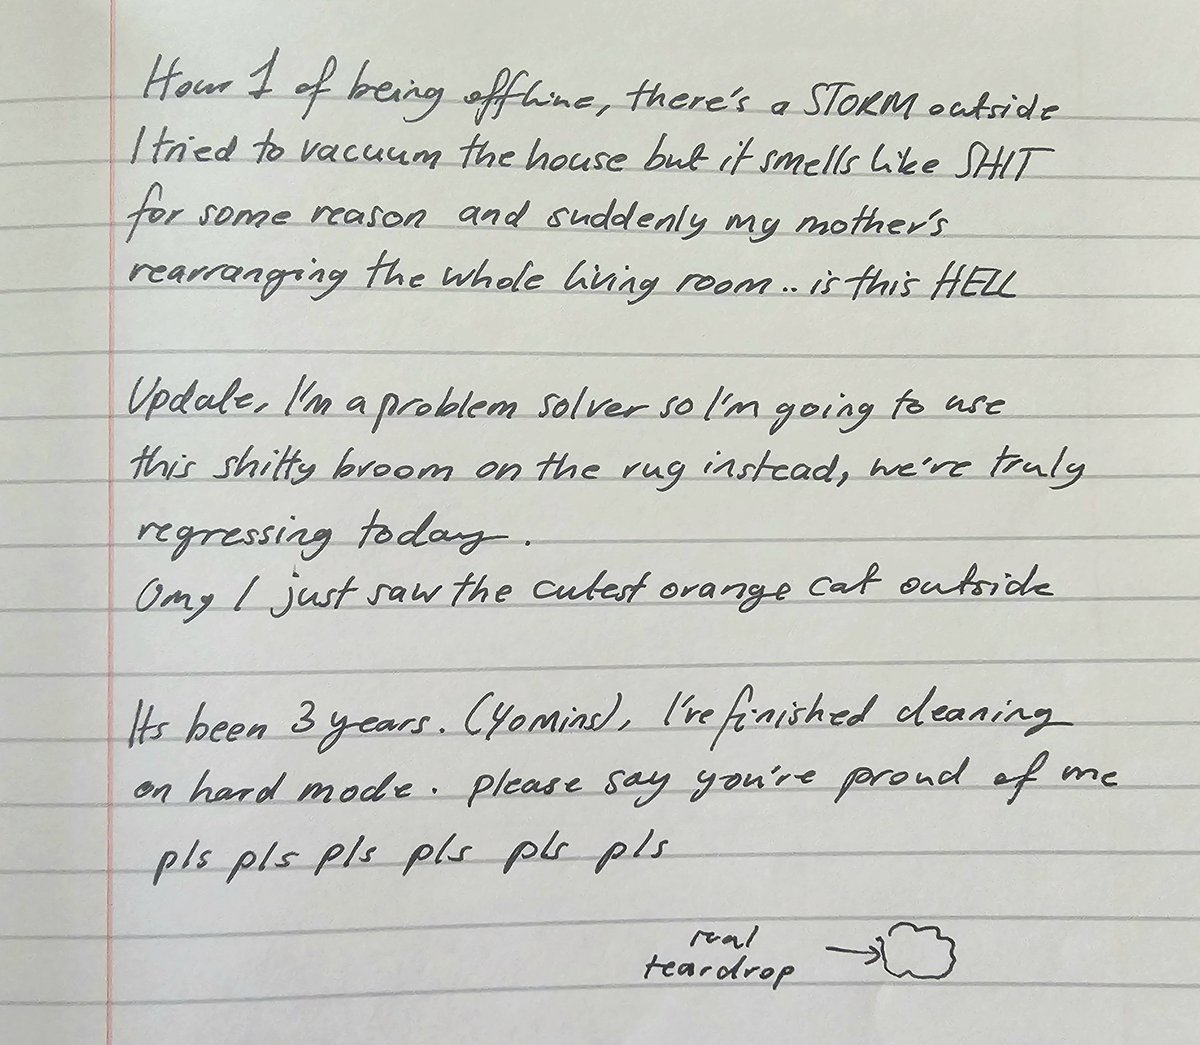 Hour 1 of being offline, there's a STORM outside
I tried to vacuum the house but it smells like SHIT
for some reason and suddenly my mother's
rearranging the whole living room.. is this HELL
Update, I'm a problem solver so I'm going to use
this shitty broom on the rug instead, we're truly
regressing today.
Omg I just saw the cutest orange cat outside
Its been 3 years. (40mins), I've finished cleaning
on hard mode. please say you're proud of me
pls pls pls pls pls pls
real
teardrop